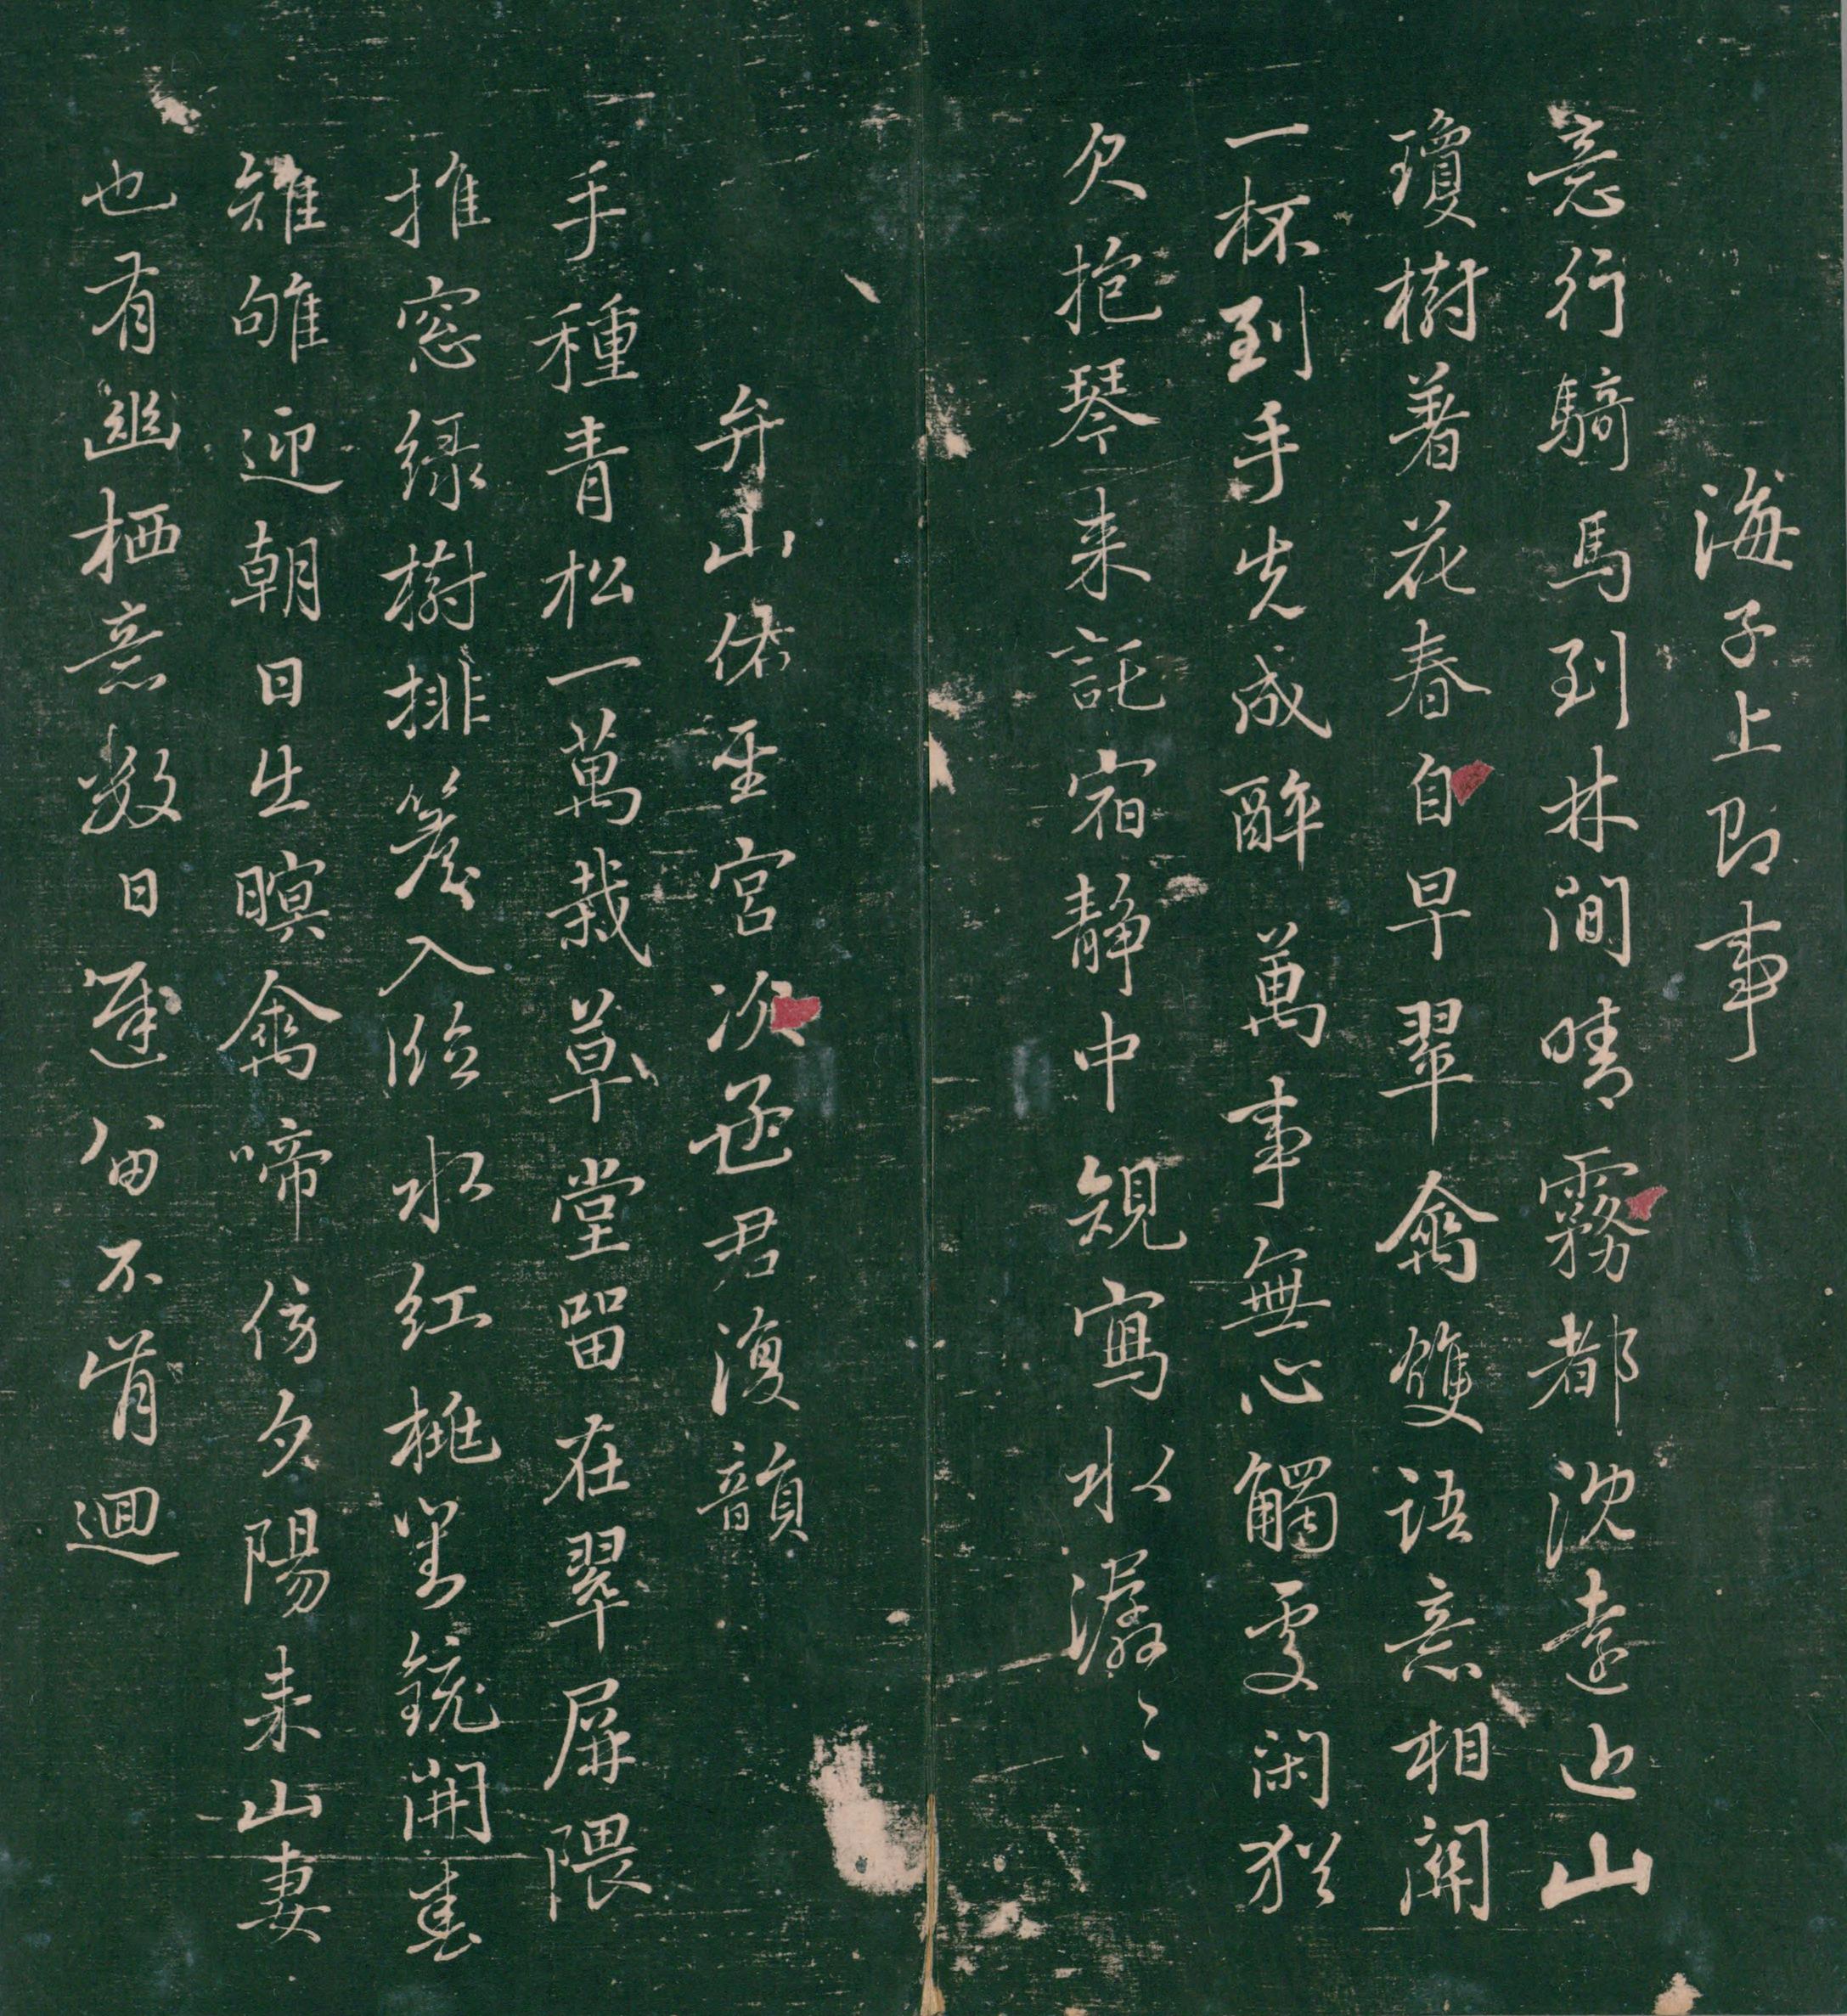 海子上即事
意行騎馬到林間晴霧都沈遠近山
瓊樹著花春自早翠禽雙語意相關
一杯到手先成醉萬事無心觸處閑猶
欠抱琴來託宿静中規寫水潺〻
弁山佑聖宮次孟君復韻
手種青松一萬栽草堂留在翠屏隈
推窓緑樹排簷入臨水紅桃對鏡開春
雉雊迎朝日出暝禽啼傍夕陽来山妻
也有幽栖意數日遲留不肯迴